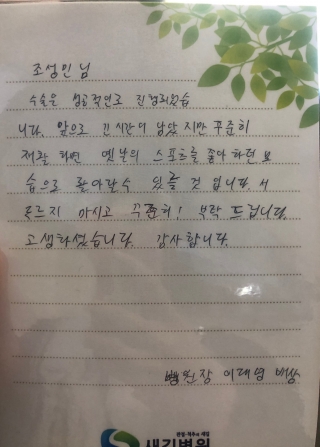 조성민님
수술은 성공적으로 진행되었습
니다. 앞으로 긴시간이 남았지만 꾸준히
재활 하면 옛날의 스포츠를 좋아하던 모
습으로 돌아갈수 있를 것 입니다. 서
두르지 마시고 꾸준히! 부탁 드립니다.
고생하셨습니다. 감사합니다.
병원장 이대영 배상
관절·척추의 새길
새길병원